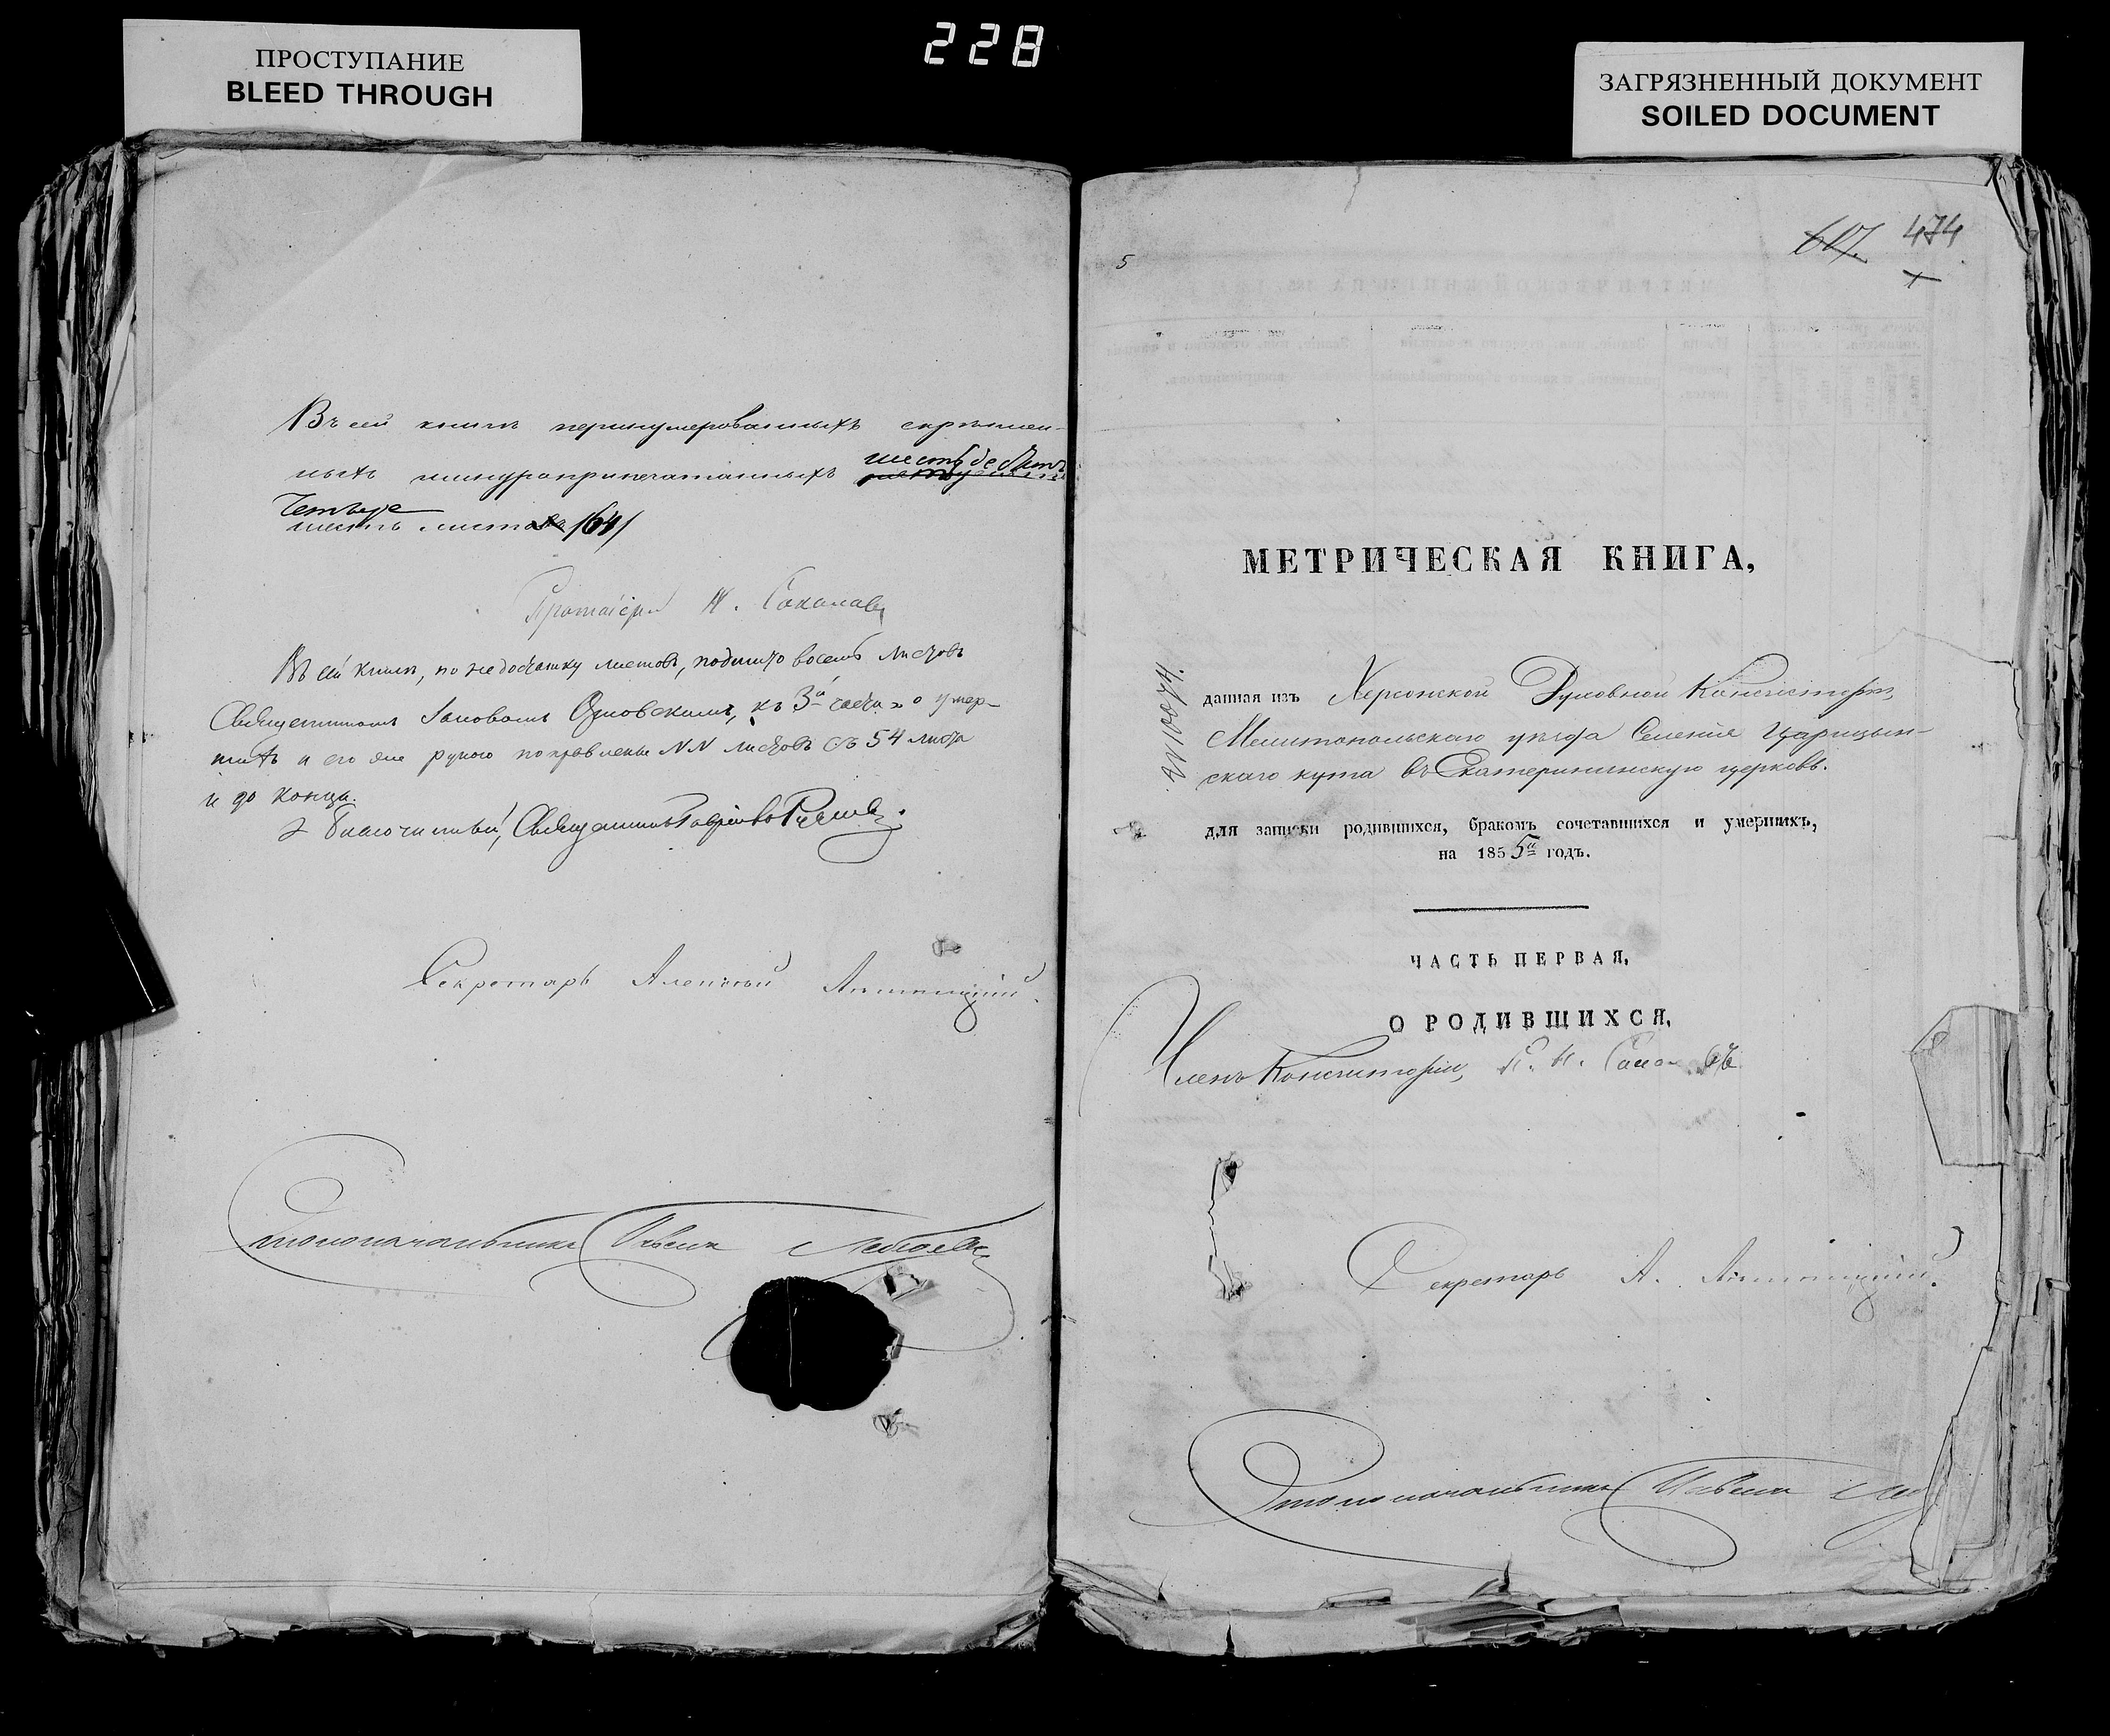 228
ПРОСТУПАНИЕ
BLEED THROUGH
ЗАГРЯЗНЕННЫЙ ДОКУМЕНТ
SOILED DOCUMENT
Въ сей книгѣ перенумерованныхъ скрѣплен-
ныхъ шнуроприпечатанныхъ шестьдесятъ
четыре листа /64/
Протоіерей И. Соколовъ
Въ сей книгѣ, по недостатку листовъ, подшито восемь листовъ
Священникомъ Іаковомъ къ 3й части о умер-
шихъ и его же рукою поправлены NN листовъ съ 54 листа
и до конца.
Благочинный, Священникъ
Секретарь Алексѣй
Столоначальникъ
5
607. 474
МЕТРИЧЕСКАЯ КНИГА,
№ 10074.
данная изъ Херсонской Духовной Консисторіи,
Мелитопольскаго уѣзда Селенія Царицын-
скаго кута въ Екатерининскую церковь.
для записки родившихся, бракомъ сочетавшихся и умершихъ,
на 1855й годъ.
ЧАСТЬ ПЕРВАЯ,
О РОДИВШИХСЯ,
Членъ Консисторіи,
Секретарь А.
Столоначальникъ